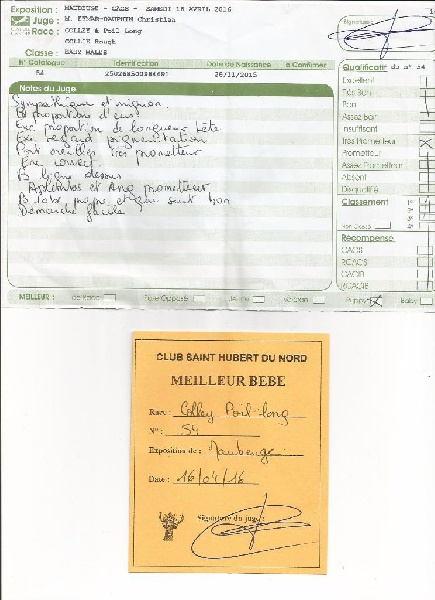 Exposition : MAUBEUGE - CACS - SAMEDI 16 AVRIL 2016
Juge : M. ETMAR-DAUPHIN Christian
Race : COLLEY à Poil Long
COLLIE Rough
Classe : BABY MALES
Signature :
N° Catalogue Identification Date de Naissance à Confirmer
54 28/11/2015
Notes du Juge
Sympathique et mignon.
B proportions d'ens
Exc proportion de longueur tête
Exc regard pigmentation
Port oreilles très prometteur
Enc correct.
B ligne dessus
Aplombs et Ang prometteur
Démarche facile
Qualificatif du n° 54
Excellent
Très Bon
Bon
Assez bon
Insuffisant
Très Prometteur
Prometteur
Assez Prometteur
Absent
Disqualifié
Classement 1°
2°
3°
Non Classé 4°
Récompense
CACS
RCACS
CACIB
RCACIB
MEILLEUR : de Race Sexe Opposé Jeune Vétéran Puppy Baby
CLUB SAINT HUBERT DU NORD
MEILLEUR BEBE
Race : Colley Poil-long
N° : 54
Exposition de : Maubeuge
Date : 16/04/16
Signature du juge :